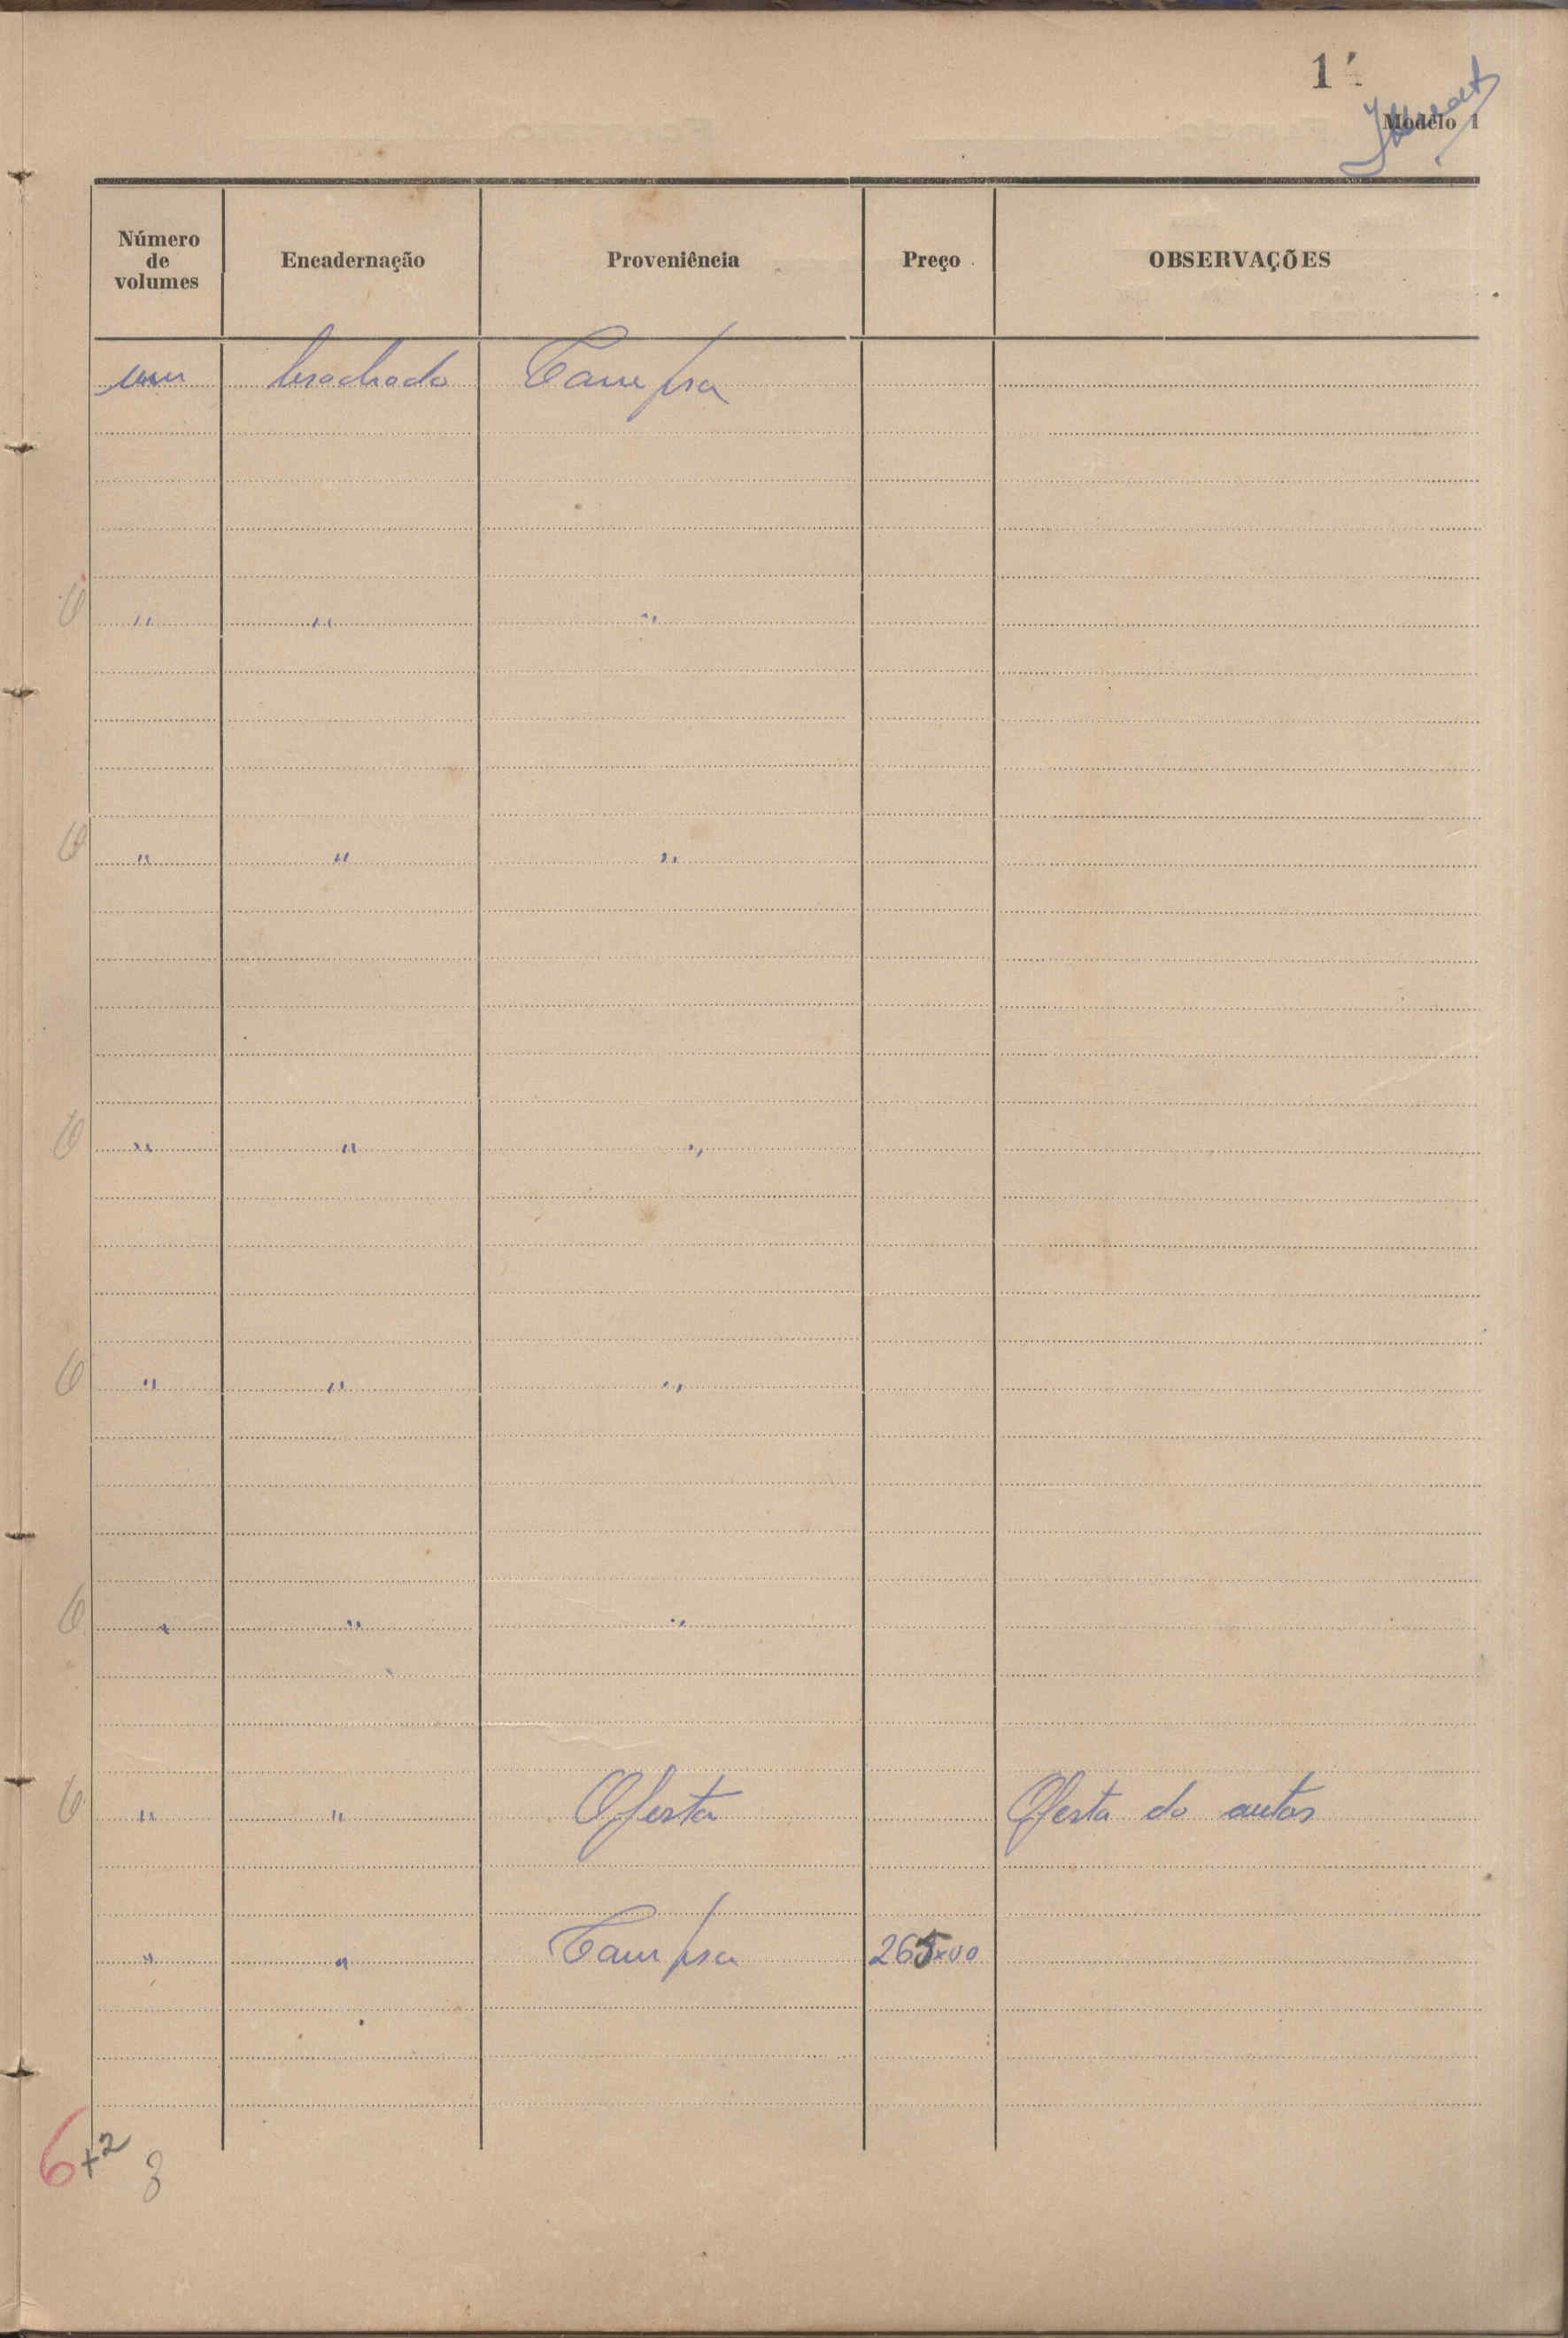 1
Modêlo 1
Número de volumes Encadernação Proveniência Preço OBSERVAÇÕES
um brochado Compra
" " "
" " "
" " "
" " "
" " "
" " Oferta Oferta do autor
" " Compra 265x00
6 +2
8